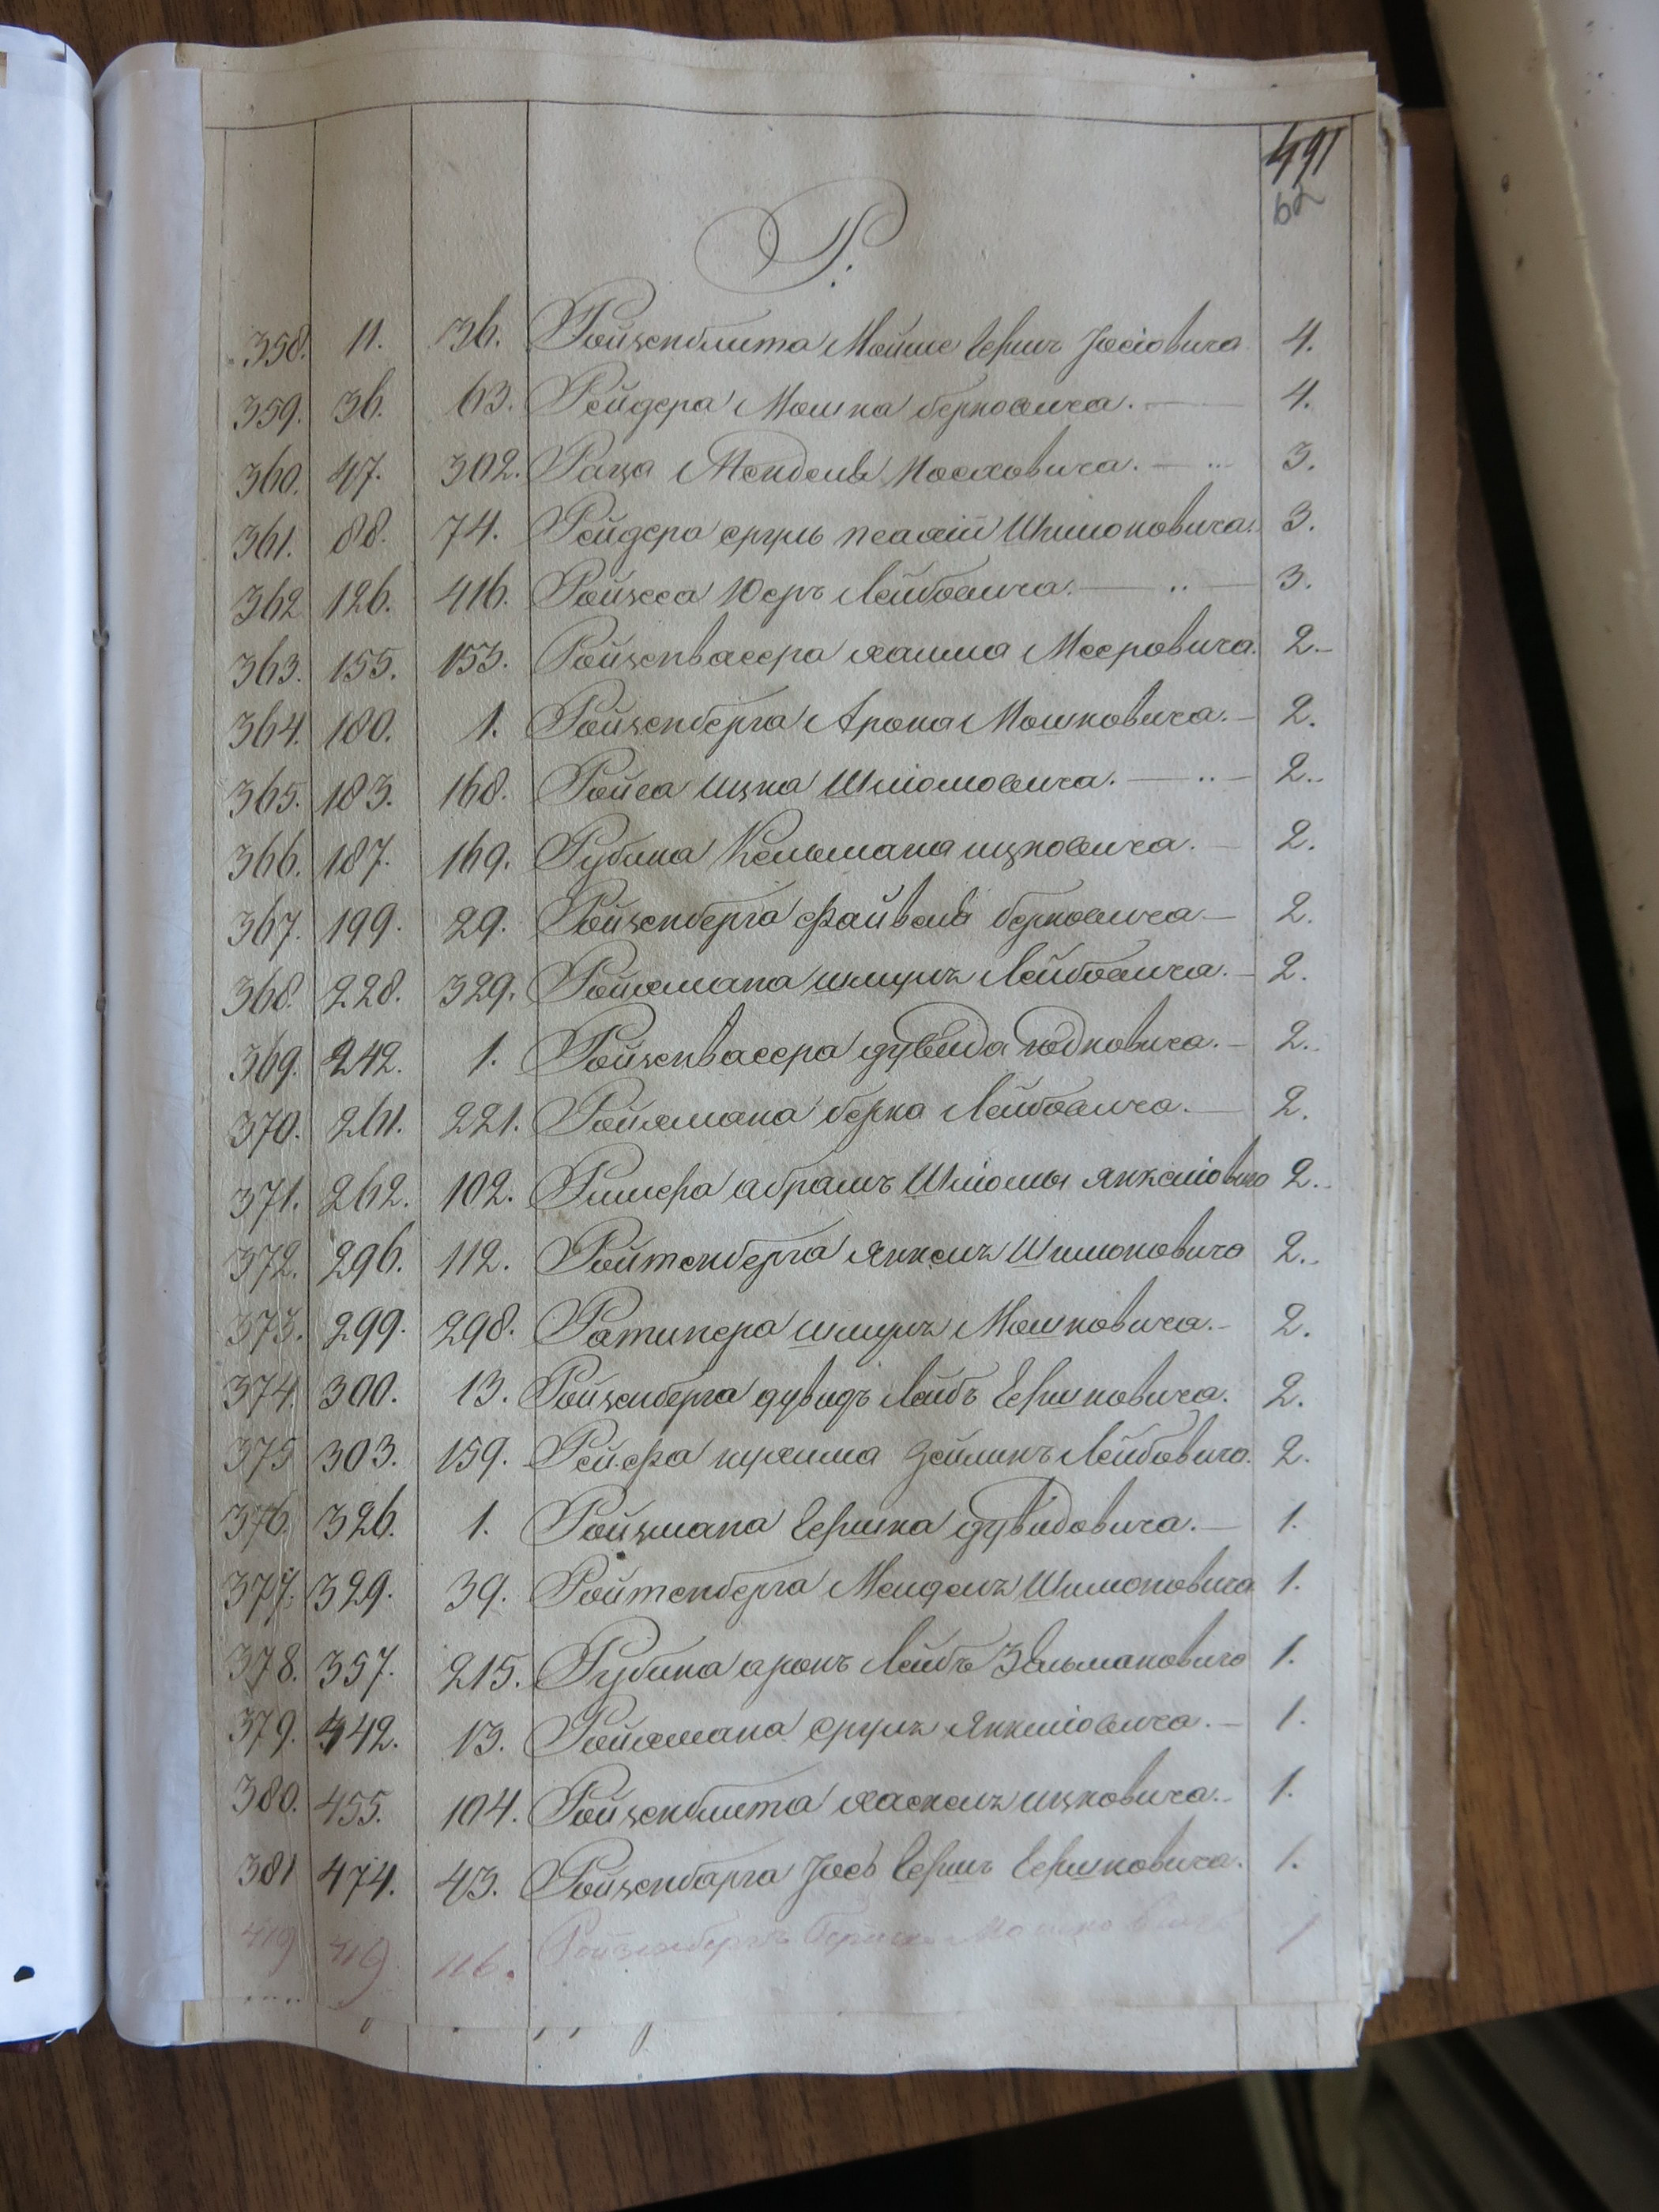 491
62
Р.
358. 11. 36. Ройзенблита Мойше Герш Іосіовича 4.
359. 36. 63. Рейдера Мошка Берковича. 4.
360. 47. 302. Раца Мендель Мосховича. 3.
361. 88. 74. Рейдера Сруль Песахій Шимоновича. 3.
362 126. 416. Ройзеса Юеръ Лейбовича. 3.
363. 155. 153. Ройзенвассера Хаима Мееровича. 2.
364. 180. 1. Ройзенберга Арона Мошковича. 2.
365. 183. 168. Ройса Ицка Шліомовича. 2.
366. 187. 169. Рубина Кельмана Ицковича. 2.
367. 199. 29. Ройзенберга Файвель Берковича 2.
368. 228. 329. Ройхмана Шмулъ Лейбовича. 2.
369. 242. 1. Ройзенвассера Дувида Юдковича. 2.
370. 261. 221. Ройхмана Берка Лейбовича. 2.
371. 262. 102. Ришера Абрамъ Шліомы Янкеліовича 2.
372. 296. 112. Ройтенберга Янкелъ Шимоновича 2.
373. 299. 298. Ратинера Шмулъ Мошковича. 2.
374. 300. 13. Ройзенберга Дувидъ Лейбъ Гершковича. 2.
375 303. 159. Рейфа Нухима Зейликъ Лейбовича. 2.
376. 326. 1. Ройзмана Гершка Дувидовича. 1.
377. 329. 39. Ройтенберга Мендель Шимоновича 1.
378. 357. 215. Рубина Аронъ Лейбъ Зельмановича 1.
379. 442. 13. Ройхмана Срулъ Янкеліовича. 1.
380. 455. 104. Ройзенблита Хаскелъ Ицковича. 1.
381 474. 43. Ройзенбарга Іось Гершъ Гершковича. 1.
419 419 116. Ройзенбергъ 1